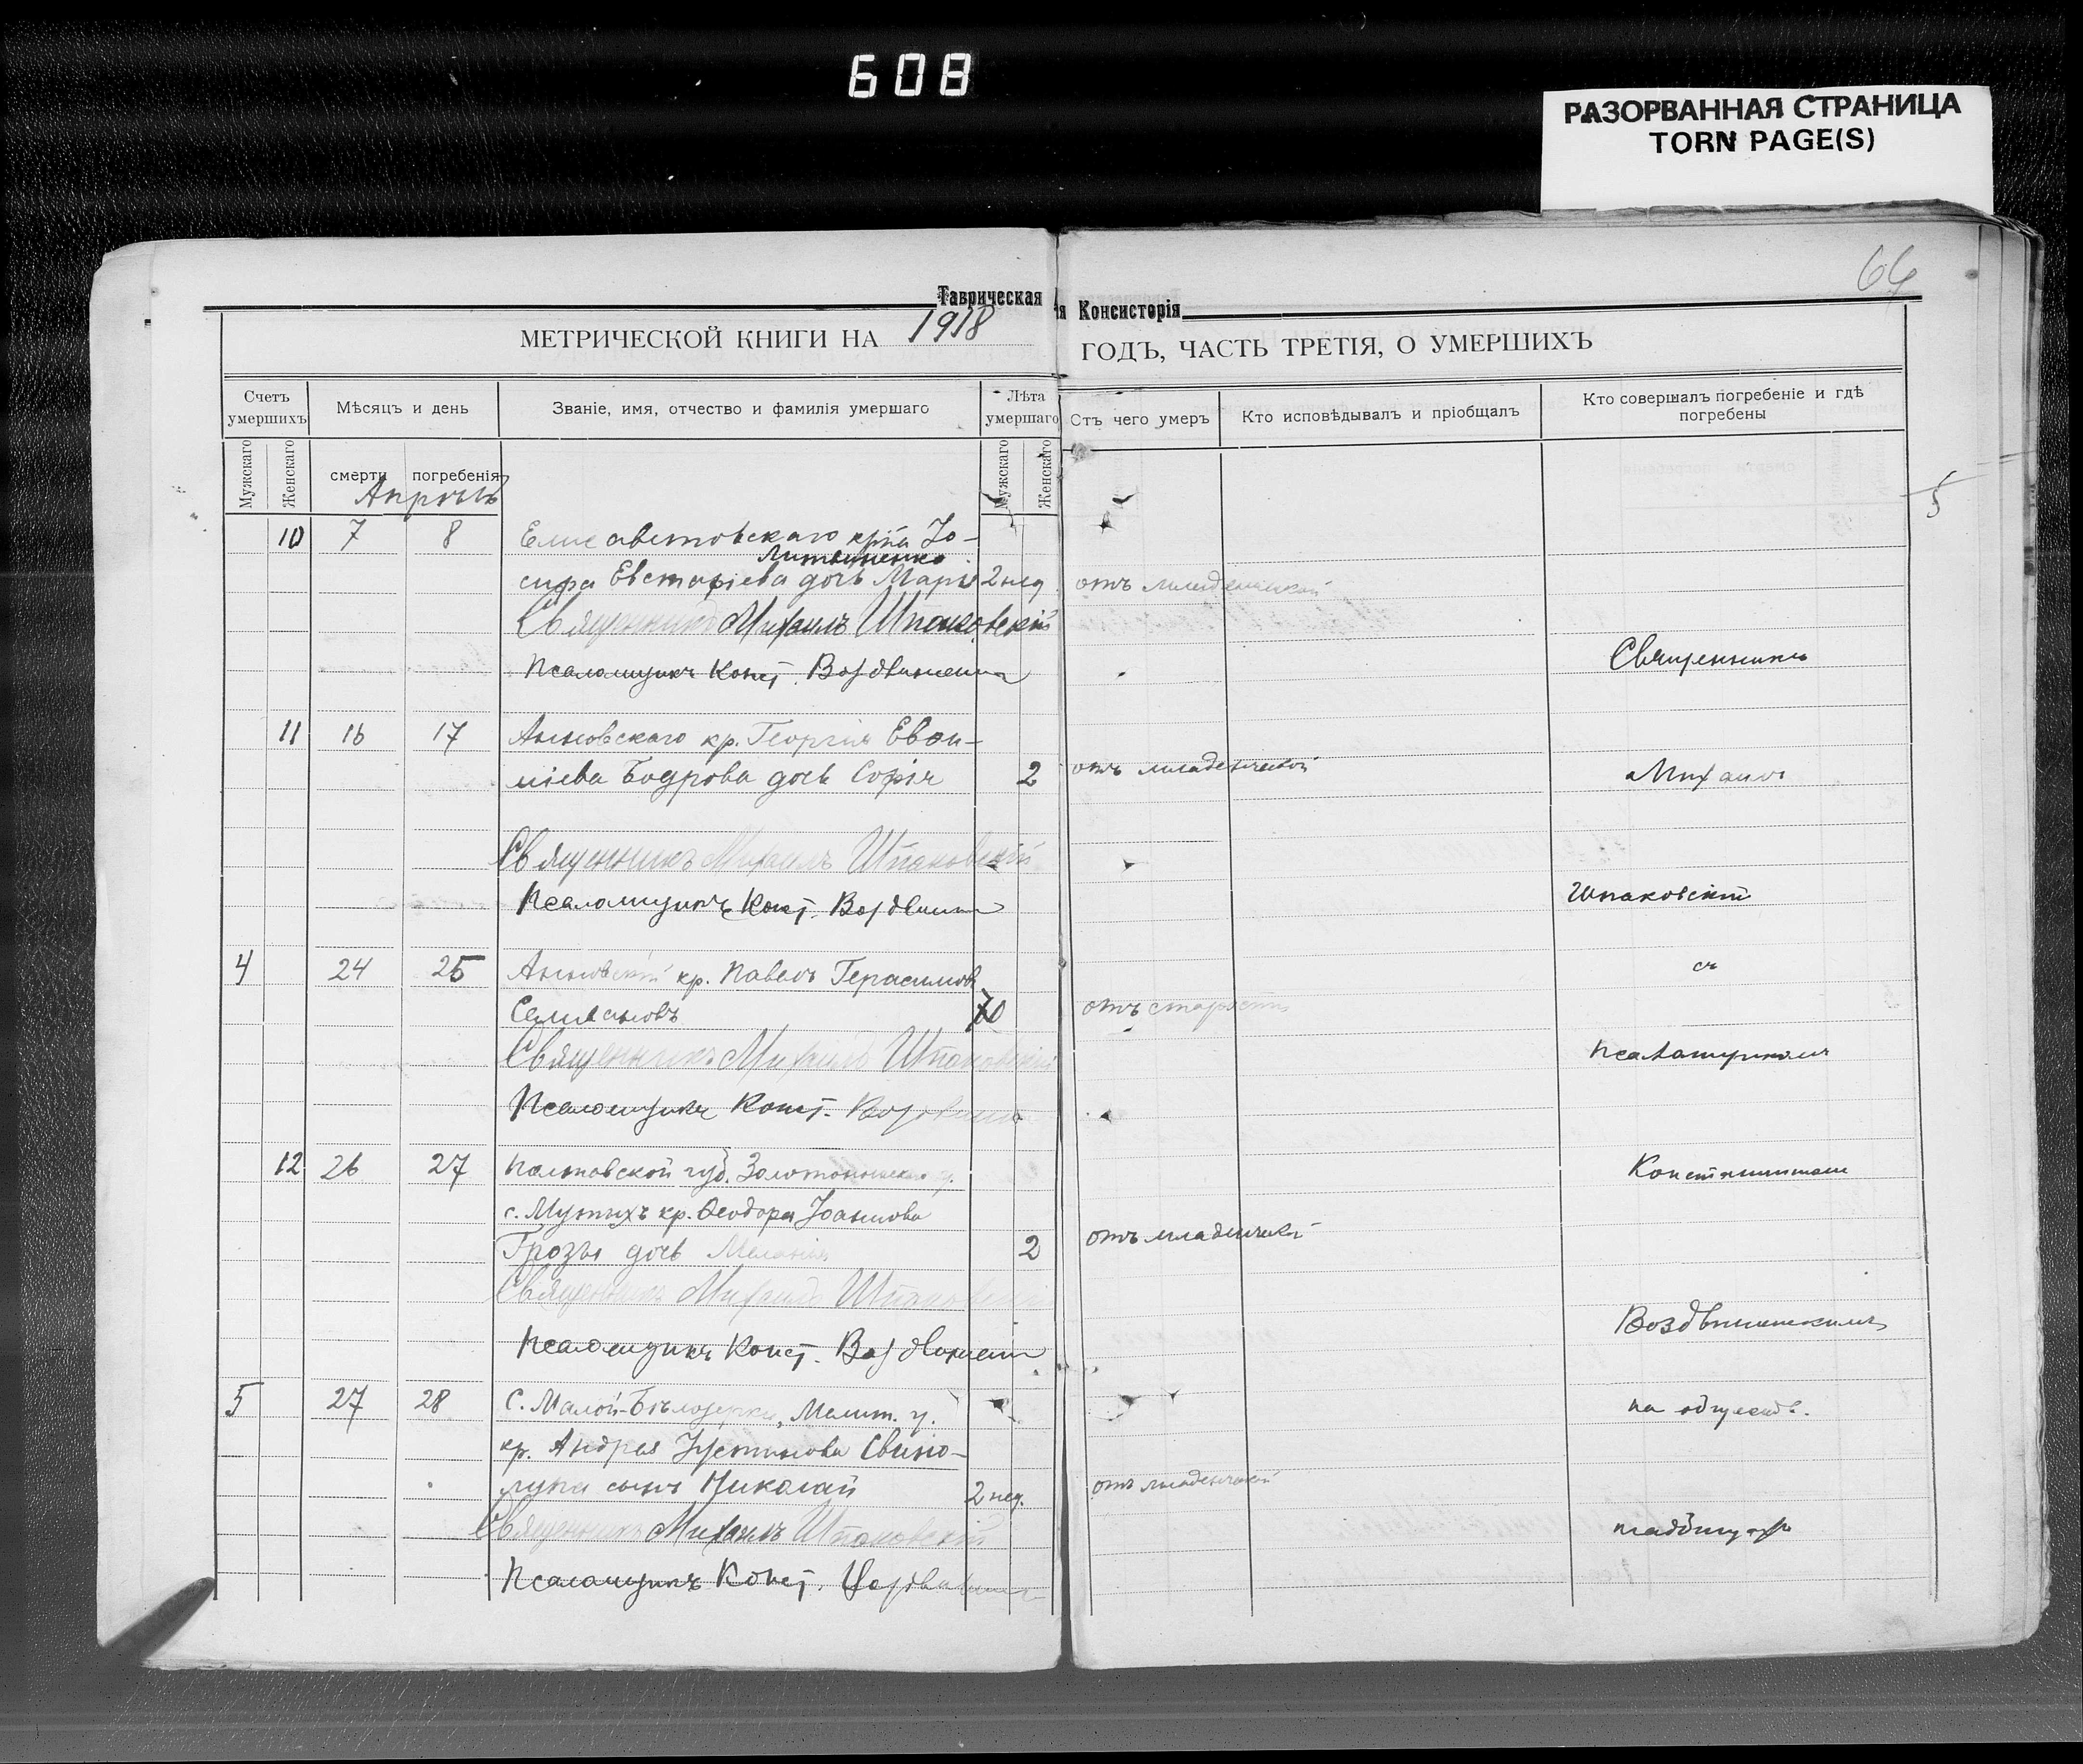 608
РАЗОРВАННАЯ СТРАНИЦА
TORN PAGE(S)
66
Таврическая
я Консисторія
МЕТРИЧЕСКОЙ КНИГИ НА 1918
ГОДЪ, ЧАСТЬ ТРЕТІЯ, О УМЕРШИХЪ
Счетъ умершихъ
Мѣсяцъ и день
Званіе, имя, отчество и фамилія умершаго
Лѣта умершаго
Отъ чего умеръ
Кто исповѣдывалъ и пріобщалъ
Кто совершалъ погребеніе и гдѣ погребены
Мужскаго
Женскаго
смерти
погребенія
Мужскаго
Женскаго
Апрѣль
5
10 7 8 Елисаветовскаго кр-на Іо-
Литвиненко
сифа Евстафіева дочь Марія 2 нед. отъ младенческой
Священникъ Михаилъ Шпаковскій
Псаломщикъ Конст. Воздвиженскій
Священникъ
11 16 17 Анновскаго кр. Георгія Евѳи-
міева Бодрова дочь Софія 2 отъ младенческой
Михаилъ
Священникъ Михаилъ Шпаковскій
Псаломщикъ Конст. Воздвиж
Шпаковскій
4 24 25 Анновскій кр. Павелъ Герасимовъ
съ
70 отъ старости
Священникъ Михаилъ Шпаковскій
псаломщикомъ
Псаломщикъ Конст. Воздвиж
12 26 27 Полтавской губ. Золотоношскаго у.
Константиномъ
с. Мутыхъ кр. Ѳеодора Іоаннова
Грозы дочь Меланія 2 отъ младенческ
Священникъ Михаилъ Шпаковскій
Воздвиженскимъ
Псаломщикъ Конст. Воздвижен
5 27 28 С. Малой-Бѣлозерки, Мелит. у.
на обществ.
кр. Андрея Іустинова Свино-
лупа сынъ Николай 2 нед. отъ младенческой
Священникъ Михаилъ Шпаковскій
кладбищахъ
Псаломщикъ Конст. Воздвижен